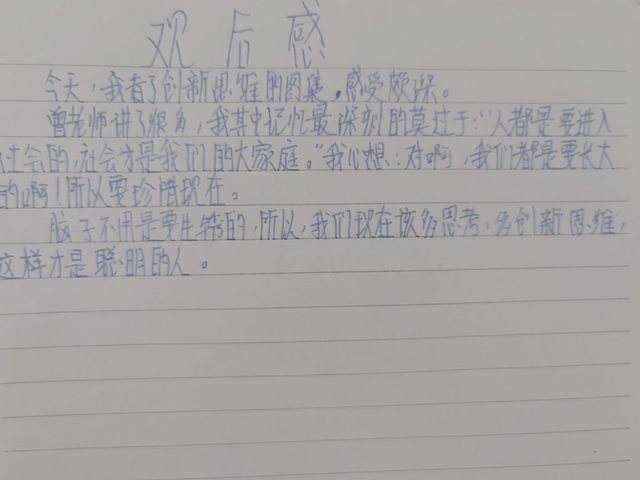 观后感
今天，我看了创新思维的图集，感受颇深。
曾老师讲了很多，我其中记忆最深刻的莫过于：“人都是要进入
社会的，社会才是我们的大家庭。”我心想：对啊，我们都是要长大
的啊！所以要珍惜现在。
脑子不用是要生锈的，所以，我们现在该多思考，多创新思维，
这样才是聪明的人。